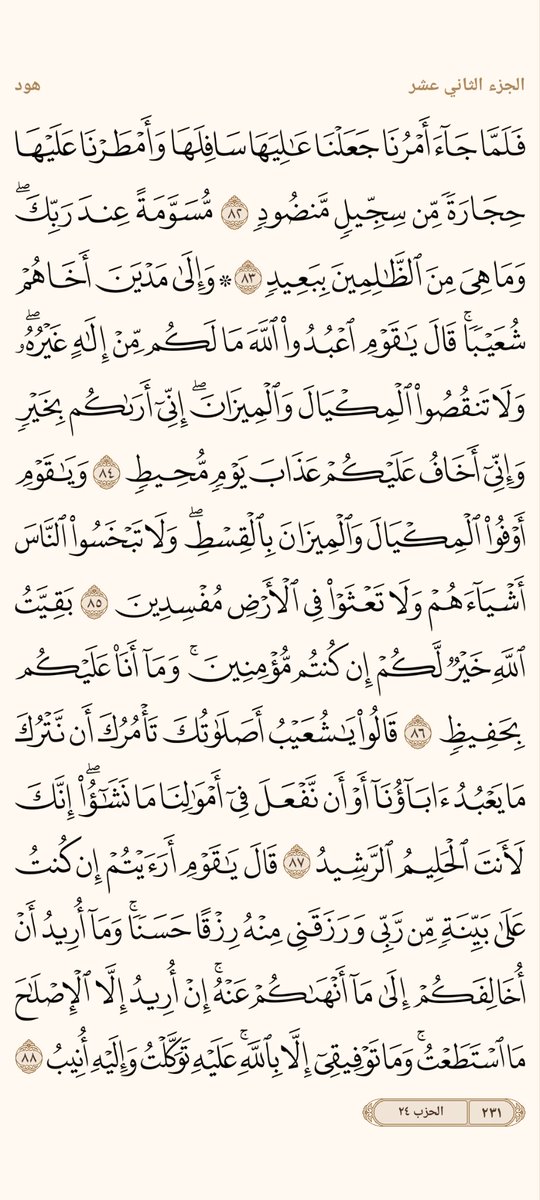 الجزء الثاني عشر
هود
فَلَمَّا جَآءَ أَمۡرُنَا جَعَلۡنَا عَٰلِيَهَا سَافِلَهَا وَأَمۡطَرۡنَا عَلَيۡهَا
حِجَارَةٗ مِّن سِجِّيلٖ مَّنضُودٖ ٨٢ مُّسَوَّمَةً عِندَ رَبِّكَۖ
وَمَا هِيَ مِنَ ٱلظَّٰلِمِينَ بِبَعِيدٖ ٨٣ ۞ وَإِلَىٰ مَدۡيَنَ أَخَاهُمۡ
شُعَيۡبٗاۚ قَالَ يَٰقَوۡمِ ٱعۡبُدُواْ ٱللَّهَ مَا لَكُم مِّنۡ إِلَٰهٍ غَيۡرُهُۥۖ
وَلَا تَنقُصُواْ ٱلۡمِكۡيَالَ وَٱلۡمِيزَانَۖ إِنِّيٓ أَرَىٰكُم بِخَيۡرٖ
وَإِنِّيٓ أَخَافُ عَلَيۡكُمۡ عَذَابَ يَوۡمٖ مُّحِيطٖ ٨٤ وَيَٰقَوۡمِ
أَوۡفُواْ ٱلۡمِكۡيَالَ وَٱلۡمِيزَانَ بِٱلۡقِسۡطِۖ وَلَا تَبۡخَسُواْ ٱلنَّاسَ
أَشۡيَآءَهُمۡ وَلَا تَعۡثَوۡاْ فِي ٱلۡأَرۡضِ مُفۡسِدِينَ ٨٥ بَقِيَّتُ
ٱللَّهِ خَيۡرٞ لَّكُمۡ إِن كُنتُم مُّؤۡمِنِينَۚ وَمَآ أَنَا۠ عَلَيۡكُم
بِحَفِيظٖ ٨٦ قَالُواْ يَٰشُعَيۡبُ أَصَلَوٰتُكَ تَأۡمُرُكَ أَن نَّتۡرُكَ
مَا يَعۡبُدُ ءَابَآؤُنَآ أَوۡ أَن نَّفۡعَلَ فِيٓ أَمۡوَٰلِنَا مَا نَشَٰٓؤُاْۖ إِنَّكَ
لَأَنتَ ٱلۡحَلِيمُ ٱلرَّشِيدُ ٨٧ قَالَ يَٰقَوۡمِ أَرَءَيۡتُمۡ إِن كُنتُ
عَلَىٰ بَيِّنَةٖ مِّن رَّبِّي وَرَزَقَنِي مِنۡهُ رِزۡقًا حَسَنٗاۚ وَمَآ أُرِيدُ أَنۡ
أُخَالِفَكُمۡ إِلَىٰ مَآ أَنۡهَىٰكُمۡ عَنۡهُۚ إِنۡ أُرِيدُ إِلَّا ٱلۡإِصۡلَٰحَ
مَا ٱسۡتَطَعۡتُۚ وَمَا تَوۡفِيقِيٓ إِلَّا بِٱللَّهِۚ عَلَيۡهِ تَوَكَّلۡتُ وَإِلَيۡهِ أُنِيبُ ٨٨
٢٣١
الحزب ٢٤